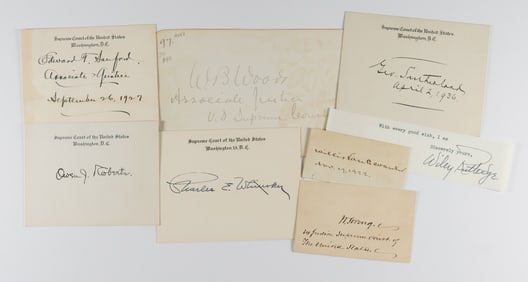 Supreme Court of the United States
Washington, D.C.
Edward T. Sanford
Associate Justice
September 26, 1927
97.
W B Woods
Associate Justice
U.S Supreme Court
Supreme Court of the United States
Washington, D.C.
Geo. Sutherland
April 2, 1936
Supreme Court of the United States
Washington, D.C.
Owen J. Roberts
Supreme Court of the United States
Washington 13, D.C.
Charles E. Whittaker
Willis Van Devanter
Nov. 1922
With every good wish, I am
Sincerely yours,
Wiley Rutledge
W. Strong
Justice Supreme Court of
The United States